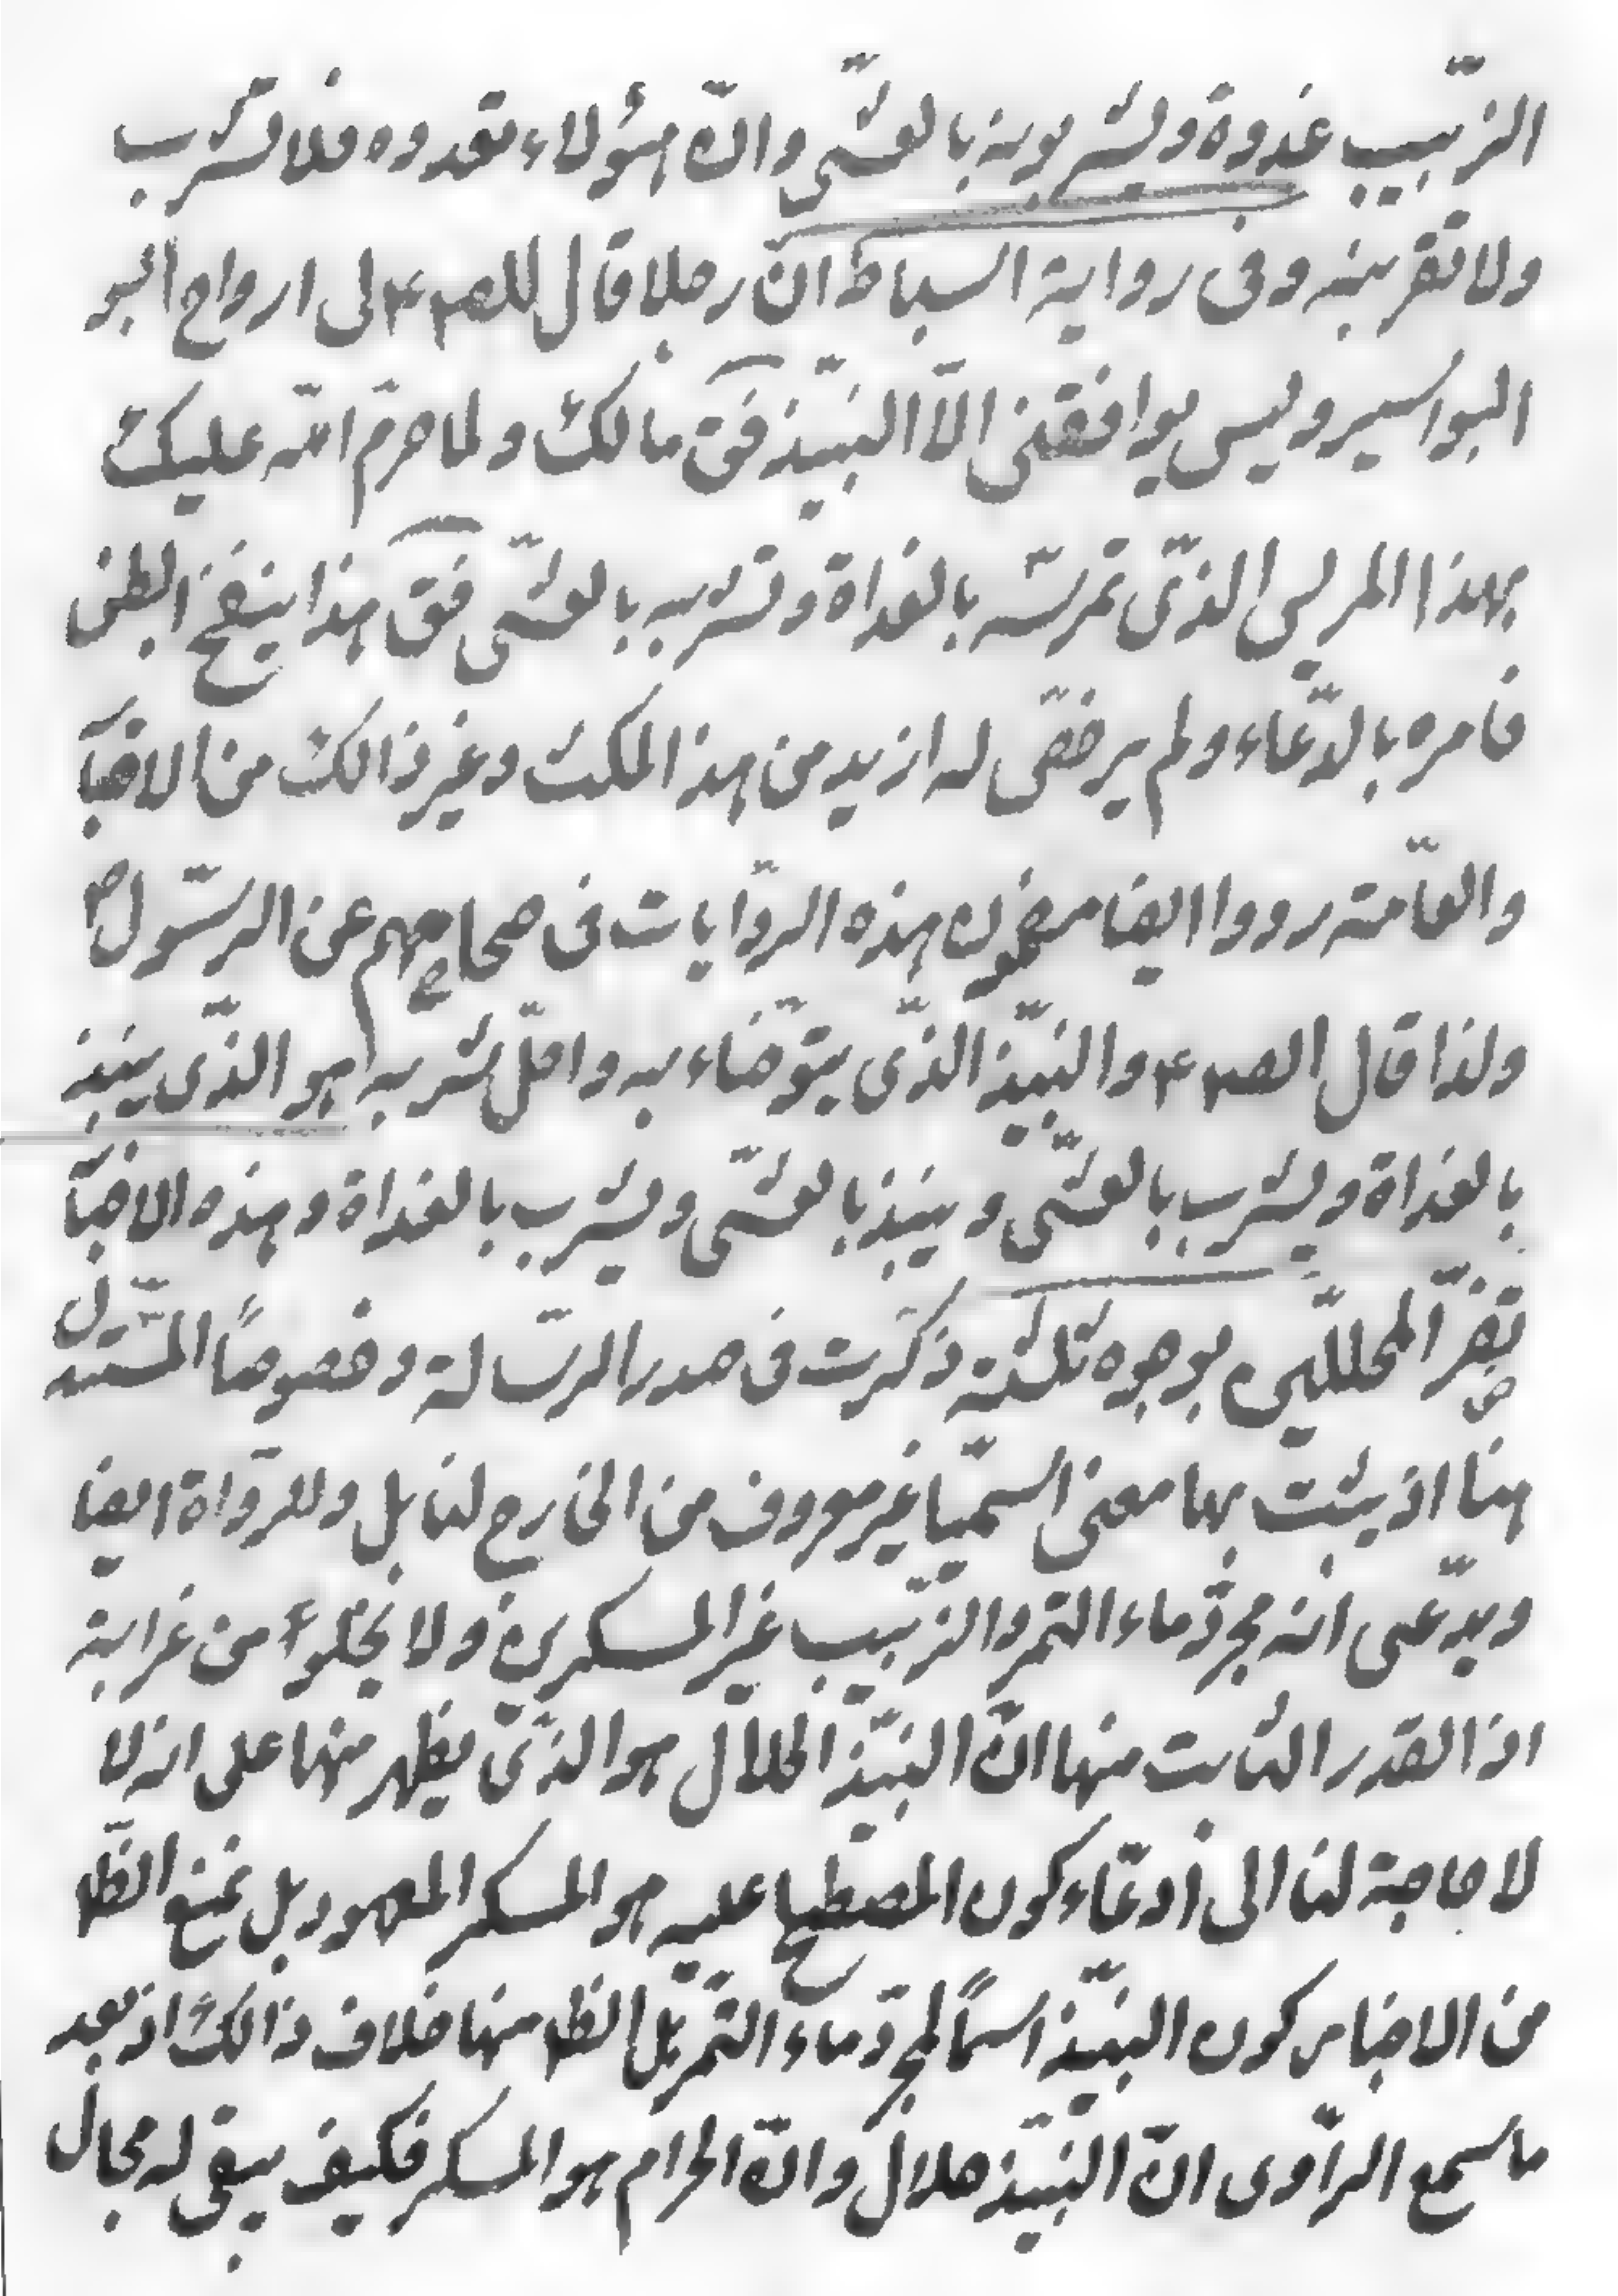 الزّبيب غدوة ويشربونه بالعشّى وانّ هؤلاء تعدوه فلا تشرب
ولا تقربنه وفى رواية السباط انّ رجلا قال للص۴ لى ارواح البو
البواسير وليس يوافقنى الّا النبيّذ فق مالك ولما حرم اللّه عليك
بهذا المريس الذّى تمرسّه بالغداة وتشربه بالعشّى فق هذا ينفخ البطن
فامره بالدّعاء ولم يرخصّ له ازيد من هذا المكث وغير ذالك من الاخبآ
والعاّمة رووا ايضا مضمون هذه الرّوايات فى صحاحهم عن الرسّول ص
ولذا قال الص۴ والنبيّذ الذّى يتوّضاء به واحلّ شربه هو الذّى ينبذ
بالغداة ويشرب بالعشّى وينبذ بالعشّى ويشرب بالغداة وهذه الاخبآ
تضرّ المحلليّن بوجوه ثلثة ذكرت فى صدر الرسّالة وخصوصًا المسّتدل
هنا اذ يثبت بها معنى اسميّا غير معروف من الخارج لنا بل وللرّواة ايضا
ويدّعى انه مجرّد ماء التمر والزّبيب غير المسكرين ولا يخلو من غرابة
اذ القدر الثابت منها انّ النبيّذ الحلال هو الذّى يظهر منها على انه لا
لا حاجة لنا الى أدعّاء كون المصطلح عليه هو المسكر المعهود بل نمنع الظها
من الاخبار كون النبيّذ اسمًا لمجرّد ماء التمر بل الظها منها خلاف ذالك اذ بعد
ما سمع الرّاوى انّ النبيّذ حلال وانّ الحرام هو المسكر فكيف يبقى له مجال